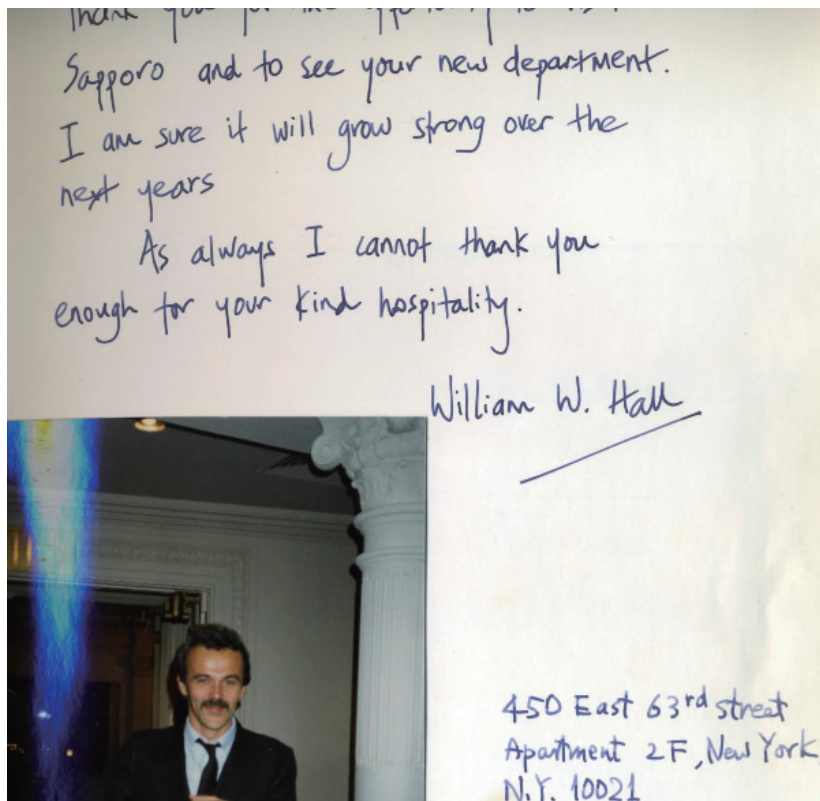 Thank you for the opportunity to visit
Sapporo and to see your new department.
I am sure it will grow strong over the
next years
As always I cannot thank you
enough for your kind hospitality.
William W. Hall
450 East 63rd street
Apartment 2F, New York
N.Y. 10021